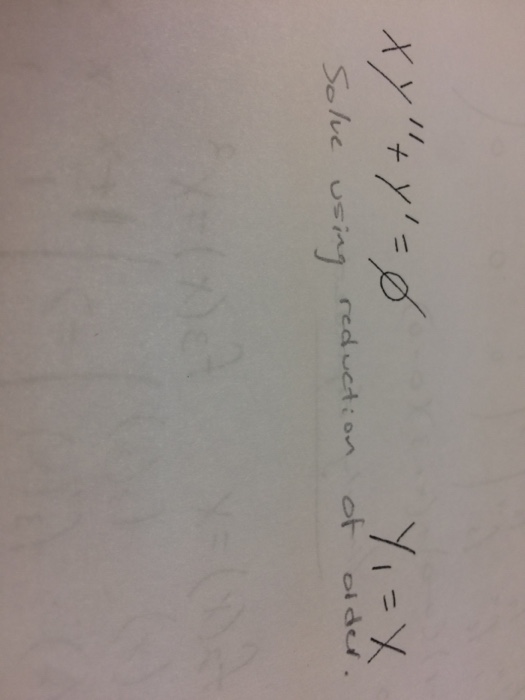 xy"+y'=∅ y₁=x
Solve using reduction of order.